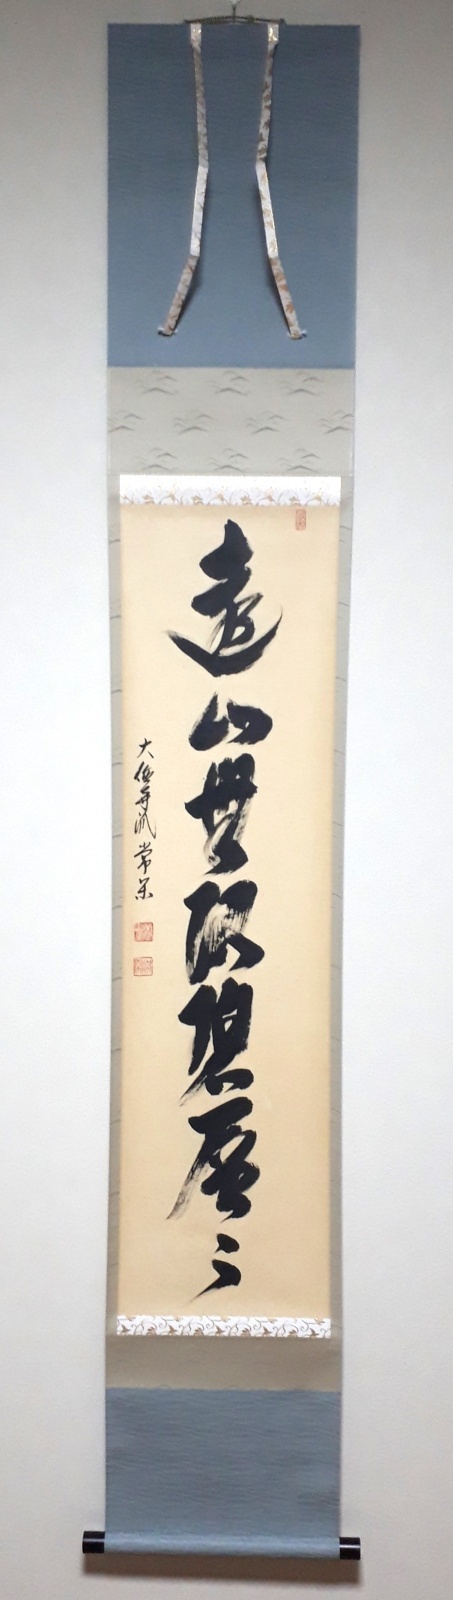 遠山無限碧層〻
大徳寺派 常栄